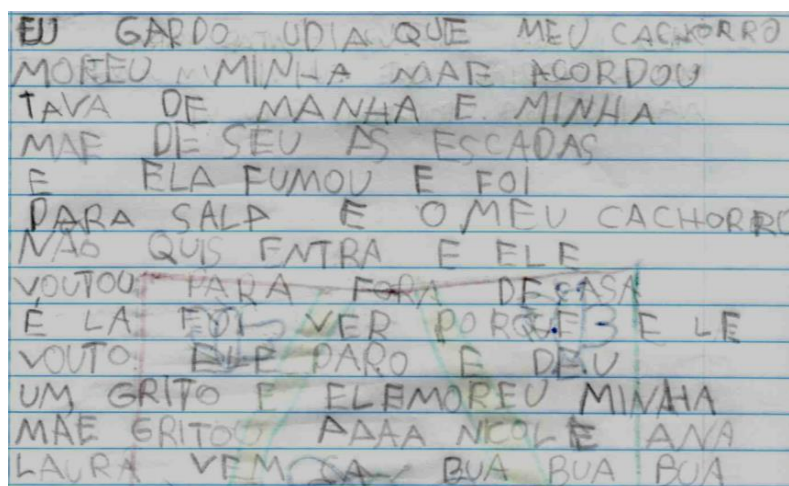 EU GARDO UDIA QUE MEU CACHORRO
MOREU MINHA MAE ACORDOU
TAVA DE MANHA E MINHA
MAE DE SEU AS ESCADAS
E ELA FUMOU E FOI
PARA SALA E O MEU CACHORRO
NÃO QUIS ENTRA E ELE
VOUTOU PARA FORA DE CASA
É LA FOI VER PORQUE E LE
VOUTO ELE PARO E DEU
UM GRITO E ELEMOREU MINHA
MÃE GRITOU AAAA NICOLE ANA
LAURA VEM CA BUA BUA BUA